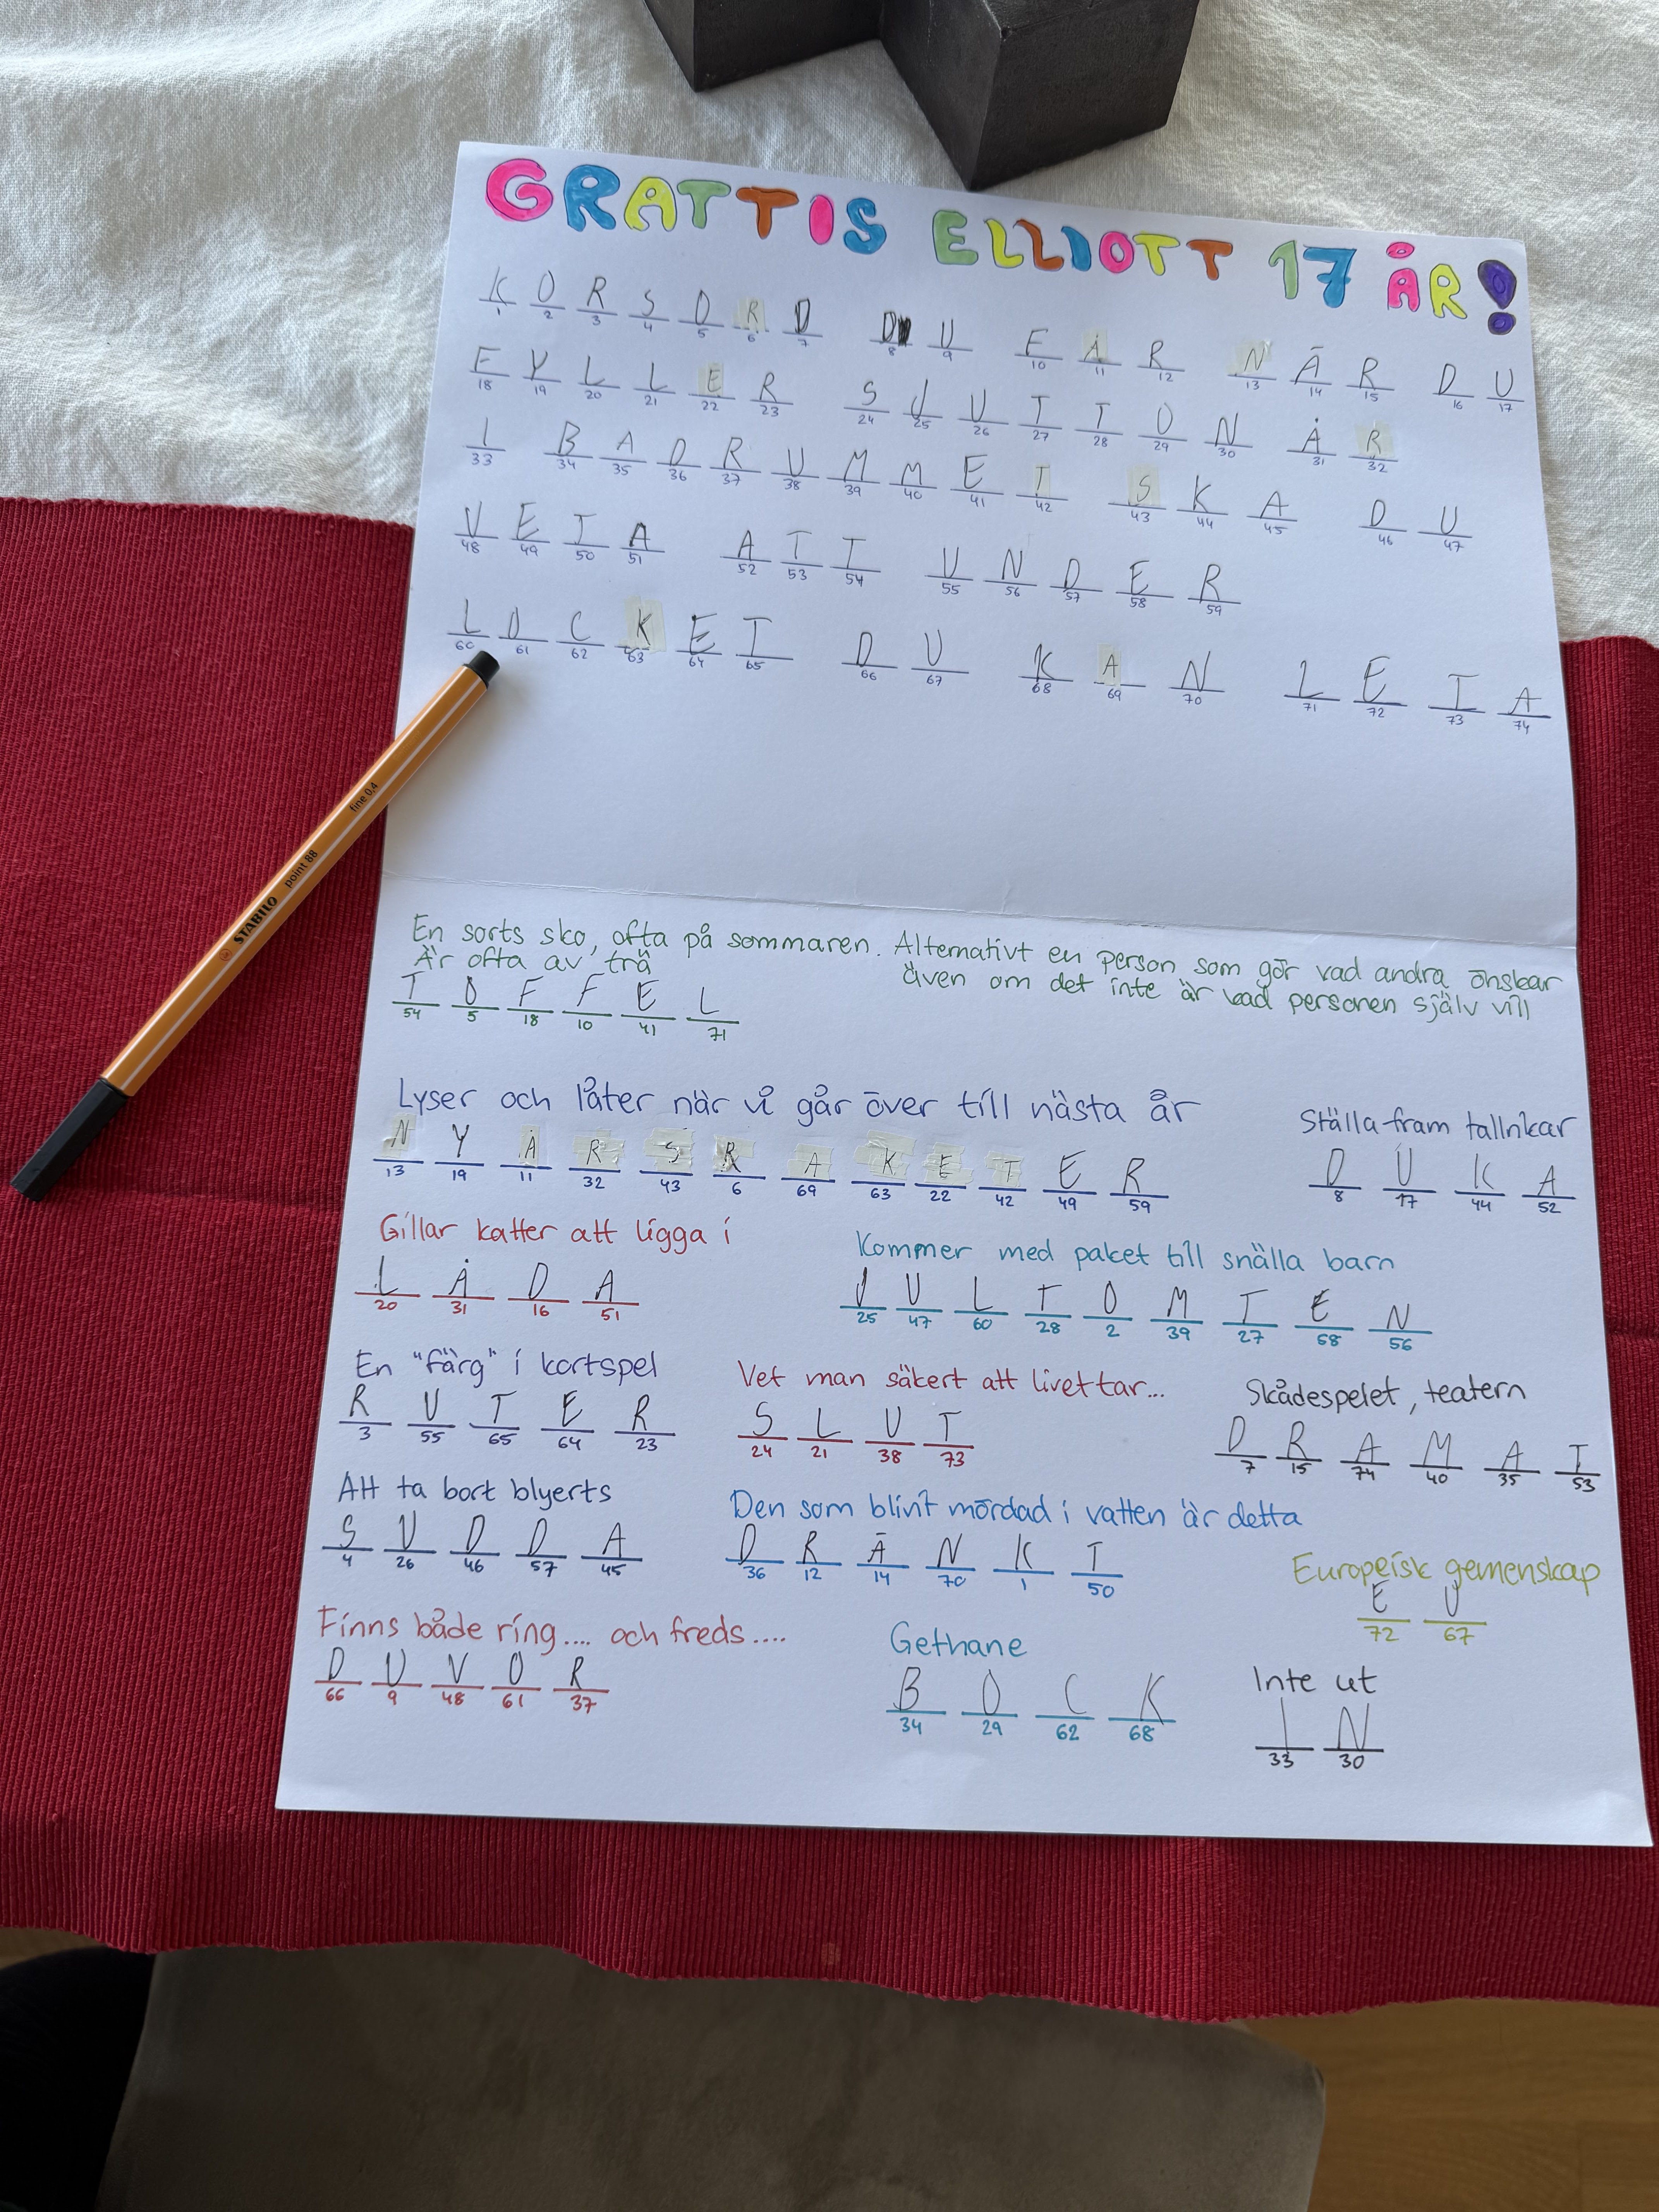 GRATTIS ELLIOTT 17 ÅR!
K O R S O R D D U F Å R N Ä R D U
1 2 3 4 5 6 7 8 9 10 11 12 13 14 15 16 17
F Y L L E R S J U T T O N Å R
18 19 20 21 22 23 24 25 26 27 28 29 30 31 32
I B A D R U M M E T S K A D U
33 34 35 36 37 38 39 40 41 42 43 44 45 46 47
V E T A A T T U N D E R
48 49 50 51 52 53 54 55 56 57 58 59
L O C K E T D U K A N L E T A
60 61 62 63 64 65 66 67 68 69 70 71 72 73 74
STABILO point 88 fine 0,4
En sorts sko, ofta på sommaren. Alternativt en person som gör vad andra önskar
Är ofta av trä även om det inte är vad personen själv vill
T O F F E L
54 5 18 10 41 71
Lyser och låter när vi går över till nästa år
N Y Å R S R A K E T E R
13 19 11 32 43 6 69 63 22 42 49 59
Ställa fram tallrikar
D U K A
8 17 44 52
Gillar katter att ligga i
L Å D A
20 31 16 51
Kommer med paket till snälla barn
J U L T O M T E N
25 47 60 28 2 39 27 58 56
En "färg" i kortspel
R U T E R
3 55 65 64 23
Vet man säkert att livet tar...
S L U T
24 21 38 73
Skådespelet, teatern
D R A M A T
7 15 74 40 35 53
Att ta bort blyerts
S U D D A
4 26 46 57 45
Den som blivit mördad i vatten är detta
D R Ä N K T
36 12 14 70 1 50
Europeisk gemenskap
E U
72 67
Finns både ring.... och freds....
D U V O R
66 9 48 61 37
Gethane
B O C K
34 29 62 68
Inte ut
I N
33 30